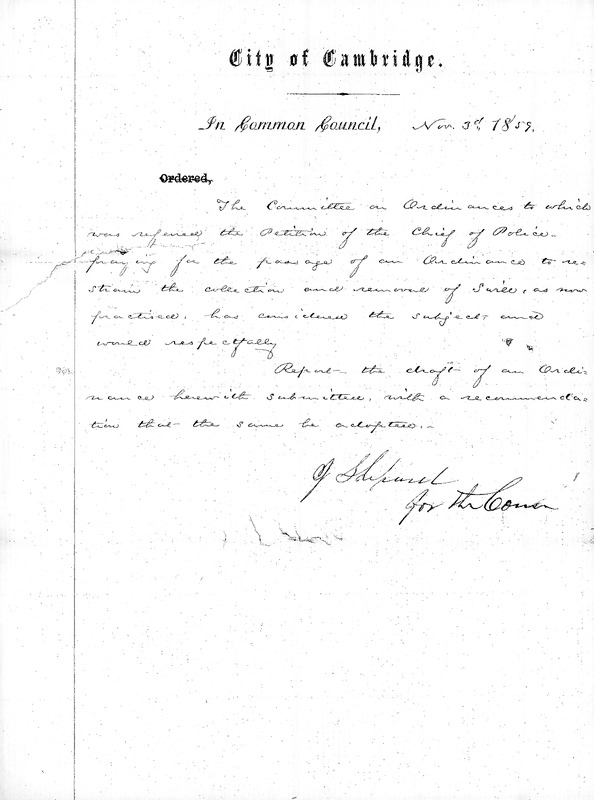 City of Cambridge.
In Common Council, Nov. 3d, 1859.
Ordered,
The Committee on Ordinances to which
was referred the Petition of the Chief of Police
praying for the passage of an Ordinance to re=
strain the collection and removal of Swill, as now
practised, has considered the subject and
would respectfully
Report the draft of an Ordi=
nance herewith submitted, with a recommenda=
tion that the same be adopted.
J Shepard
for the Comm